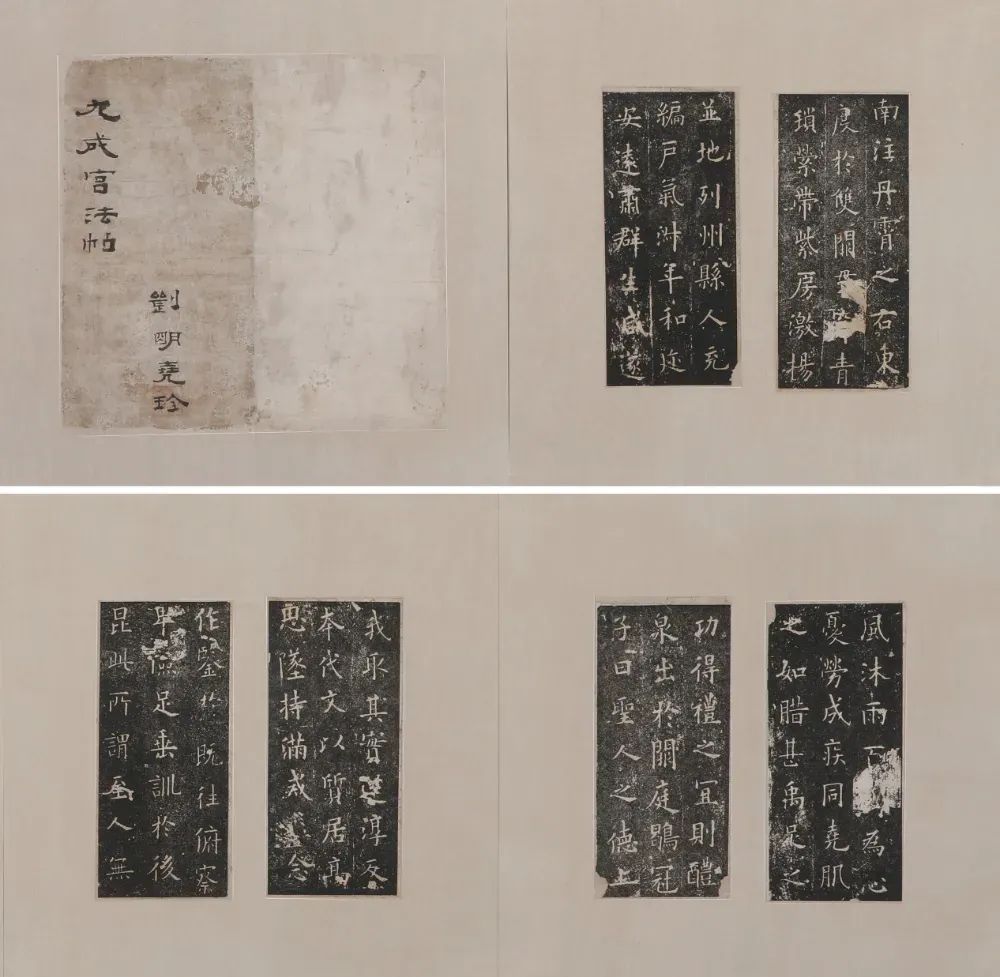 九成宫法帖
劉明堯珍
南注丹霄之右東
度於雙闕青
瑣縈帶紫房激揚
並地列州縣人充
編戶氣淑年和迩
安遠肅群生咸遂
我取其實還淳反
本代文以質居高
思墜持滿戒溢念
作鑒於既往俯察
卑儉足垂訓於後
昆此所謂至人無
風沐雨為心
憂勞成疾同堯肌
之如腊甚禹足之
功得禮之宜則醴
泉出於闕庭鶡冠
子曰聖人之德上